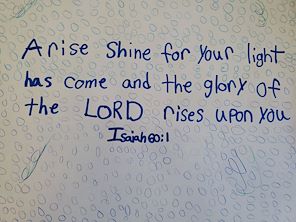 Arise Shine for your light
has come and the glory of
the LORD rises upon you
Isaiah 60:1